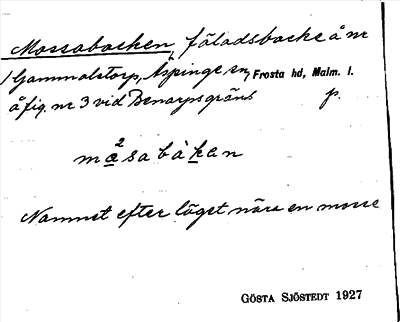 Mossabacken, fäladsbacke å nr
1 Gammalstorp, Äspinge sn, Frosta hd, Malm. l.
å fig. nr 3 vid Benarpsgräns p.
mo̲²sabàk̲en
Namnet efter läget nära en mosse
GÖSTA SJÖSTEDT 1927